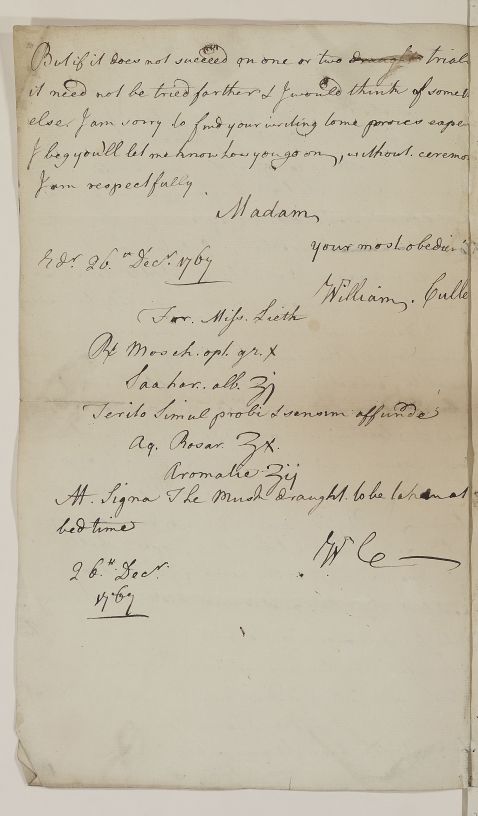 But if it does not succeed in one or two draughts trials
it need not be tried farther & I would think of some
else. I am sorry to find your writing to me proves
I beg you'll let me know how you go on, without ceremo
I am respectfully
Madam
your most obedien
Edr. 26.th Decr. 1767
William. Culle
For. Miss. Lieth
℞ Mosch. opt. gr. x
Sachar. alb. ʒj
Terito Simul probi & sensim affunde
Aq. Rosar. ʒx.
Aromatic ʒij
M. Signa The Musk draught. to be taken at
bed time
W C
26.th Decr.
1767